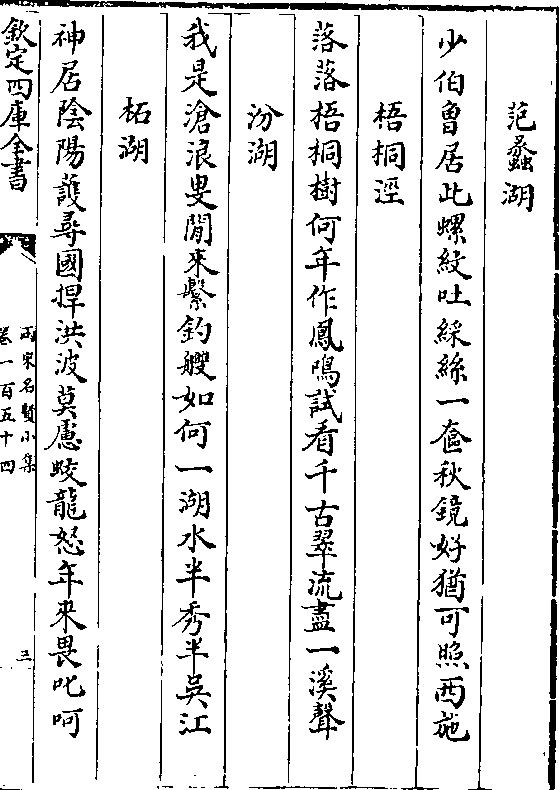 范蠡湖
少伯曾居此螺紋吐綵絲一奩秋鏡好猶可照西施
梧桐涇
落落梧桐樹何年作鳳鳴試看千古翠流盡一溪聲
汾湖
我是滄浪叟閒來繫釣艘如何一湖水半秀半吳江
柘湖
神居陰陽護尋國捍洪波莫慮蛟龍怒年來畏叱呵
欽定四庫全書
兩宋名賢小集
卷一百五十四
三